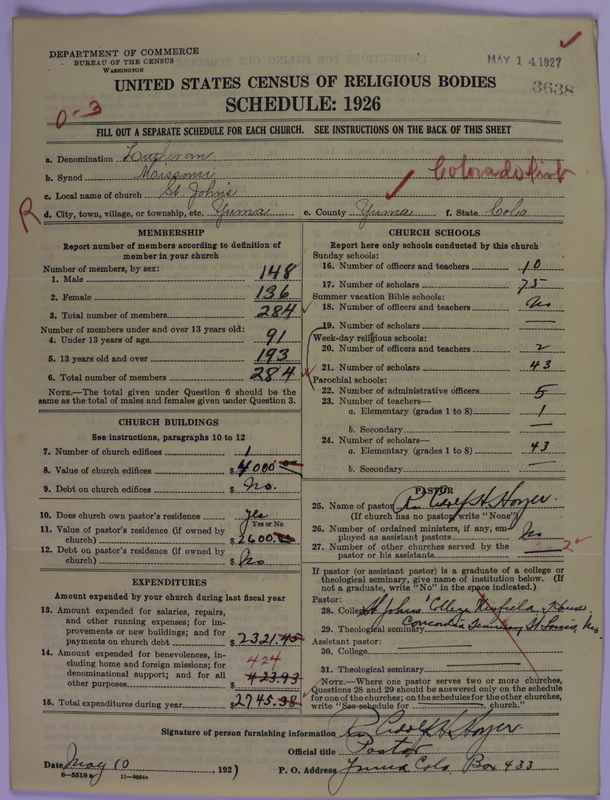 DEPARTMENT OF COMMERCE
BUREAU OF THE CENSUS
WASHINGTON
MAY 14 1927
3638
UNITED STATES CENSUS OF RELIGIOUS BODIES
SCHEDULE: 1926
0-3
FILL OUT A SEPARATE SCHEDULE FOR EACH CHURCH. SEE INSTRUCTIONS ON THE BACK OF THIS SHEET
a. Denomination Lutheran
b. Synod Missouri
Colorado
c. Local name of church St. John's
R
d. City, town, village, or township, etc. Yuma e. County Yuma f. State Colo
MEMBERSHIP
Report number of members according to definition of
member in your church
Number of members, by sex:
1. Male 148
2. Female 136
3. Total number of members 284
Number of members under and over 13 years old:
4. Under 13 years of age 91
5. 13 years old and over 193
6. Total number of members 284
NOTE.—The total given under Question 6 should be the
same as the total of males and females given under Question 3.
CHURCH BUILDINGS
See instructions, paragraphs 10 to 12
7. Number of church edifices 1
8. Value of church edifices $4000
9. Debt on church edifices $ No.
10. Does church own pastor's residence Yes
Yes or No
11. Value of pastor's residence (if owned by
church) $2600
12. Debt on pastor's residence (if owned by
church) $ No
EXPENDITURES
Amount expended by your church during last fiscal year
13. Amount expended for salaries, repairs,
and other running expenses; for im-
provements or new buildings; and for
payments on church debt $2321.45
14. Amount expended for benevolences, in-
cluding home and foreign missions; for
denominational support; and for all
424
other purposes $423.93
15. Total expenditures during year $2745.38
CHURCH SCHOOLS
Report here only schools conducted by this church
Sunday schools:
16. Number of officers and teachers 10
17. Number of scholars 75
Summer vacation Bible schools:
18. Number of officers and teachers No
19. Number of scholars —
Week-day religious schools:
20. Number of officers and teachers 2
21. Number of scholars 43
Parochial schools:
22. Number of administrative officers 5
23. Number of teachers—
a. Elementary (grades 1 to 8) 1
b. Secondary —
24. Number of scholars—
a. Elementary (grades 1 to 8) 43
b. Secondary —
PASTOR
25. Name of pastor H. Hoyer.
(If church has no pastor, write "None")
26. Number of ordained ministers, if any, em-
ployed as assistant pastors No
27. Number of other churches served by the
pastor or his assistants 2
If pastor (or assistant pastor) is a graduate of a college or
theological seminary, give name of institution below. (If
not a graduate, write "No" in the space indicated.)
Pastor:
28. College St. Johns College Winfield Kans.
29. Theological seminary Concordia Seminary St Louis, Mo.
Assistant pastor:
30. College
31. Theological seminary
NOTE.—Where one pastor serves two or more churches,
Questions 28 and 29 should be answered only on the schedule
for one of the churches; on the schedules for the other churches,
write "See schedule for church."
Signature of person furnishing information H. Hoyer
Official title Pastor
Date May 10, 1927
P. O. Address Yuma Colo. Box 433
8-5518a 11-9054